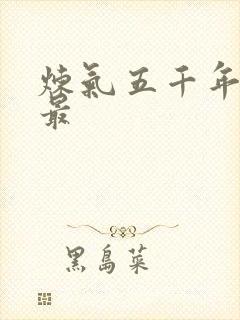 煉氣五千年
最
黑島菜